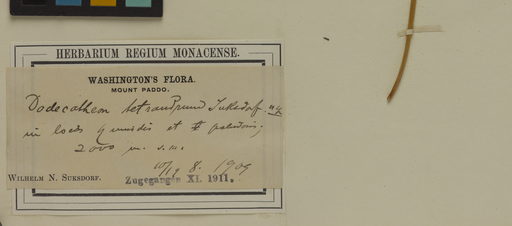 HERBARIUM REGIUM MONACENSE.
WASHINGTON'S FLORA.
MOUNT PADDO.
Dodecatheon tetrandrum Suksdorf
in locis et
2000 m. s. m.
10/19 8. 1909
WILHELM N. SUKSDORF.
Zugegangen XI. 1911.